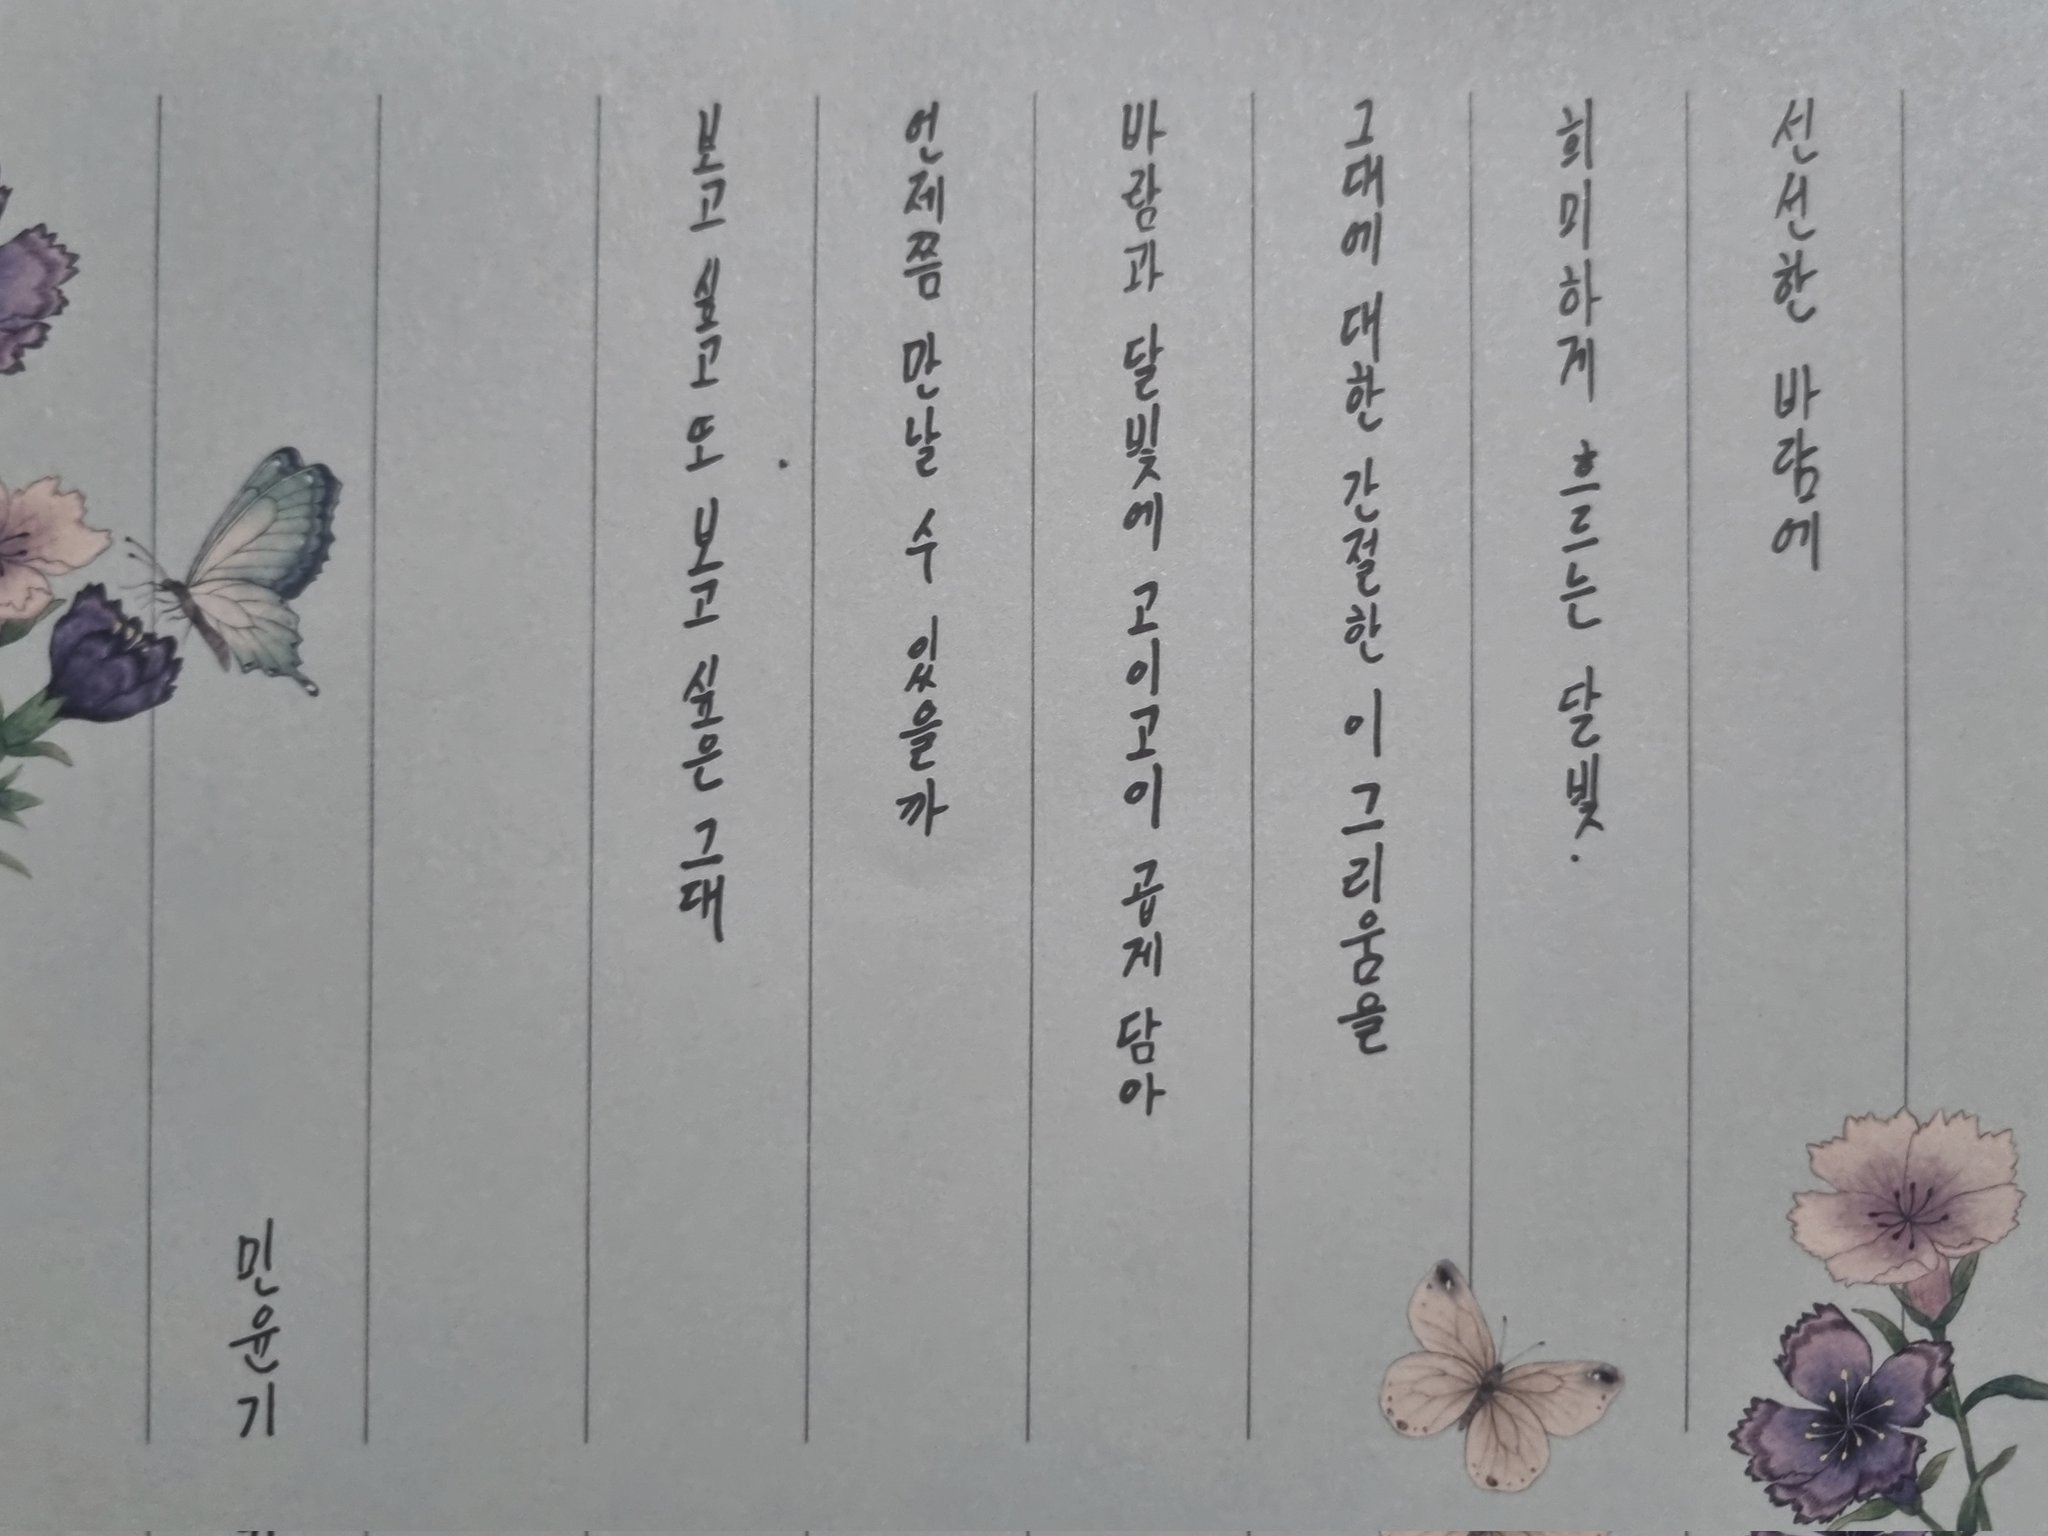 선선한 바람에
희미하게 흐르는 달빛.
그대에 대한 간절한 이 그리움을
바람과 달빛에 고이고이 곱게 담아
언제쯤 만날 수 있을까
보고 싶고 또 보고 싶은 그대
민윤기